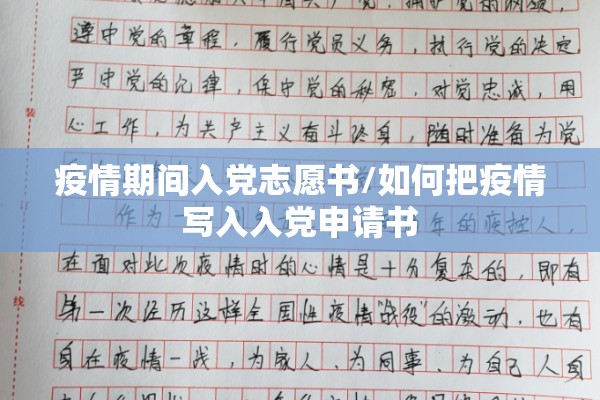 遵守党的章程，履行党员义务，执行党的决定，
严守党的纪律，保守党的秘密，对党忠诚，
心工作，为共产主义奋斗终身，随时准备为党
装
疫情期间入党志愿书/如何把疫情
写入入党申请书
作为一 年的疾控人，
在面对此次疫情时的心情是十分复杂的，即有
第一次经历这样全国性疫情“战役”的激动，也有
身在疫情一战，为家人、为同事、为自己人身
线